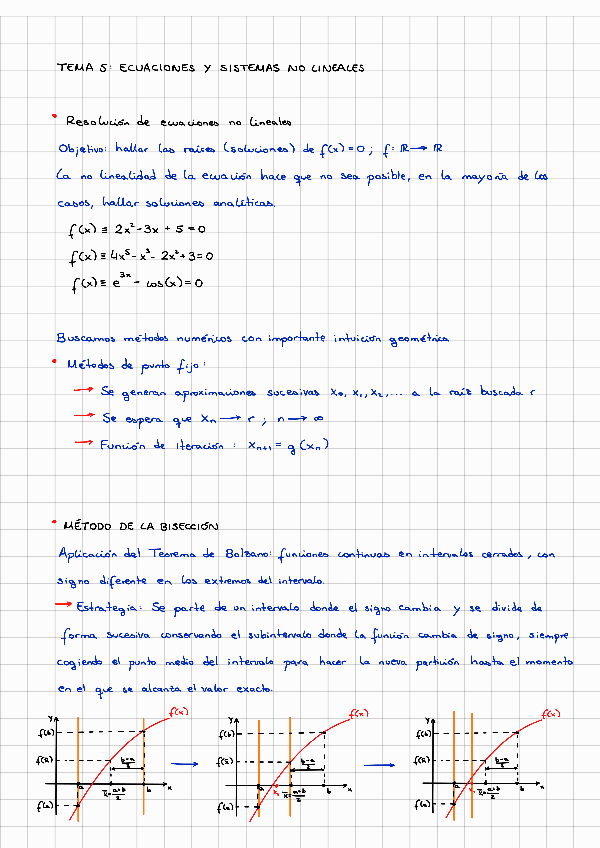 TEMA 5: ECUACIONES Y SISTEMAS NO LINEALES
• Resolución de ecuaciones no lineales
Objetivo: hallar las raíces (soluciones) de f(x)=0 ; f: ℝ → ℝ
La no linealidad de la ecuación hace que no sea posible, en la mayoría de los
casos, hallar soluciones analíticas.
f(x) ≡ 2x² - 3x + 5 = 0
f(x) ≡ 4x⁵ - x³ - 2x² + 3 = 0
f(x) ≡ e³ˣ - cos(x) = 0
Buscamos métodos numéricos con importante intuición geométrica
• Métodos de punto fijo:
→ Se generan aproximaciones sucesivas x₀, x₁, x₂, ... a la raíz buscada r
→ Se espera que xₙ → r ; n → ∞
→ Función de iteración : xₙ₊₁ = g(xₙ)
• MÉTODO DE LA BISECCIÓN
Aplicación del Teorema de Bolzano: funciones continuas en intervalos cerrados, con
signo diferente en los extremos del intervalo.
→ Estrategia: Se parte de un intervalo donde el signo cambia y se divide de
forma sucesiva conservando el subintervalo donde la función cambia de signo, siempre
cogiendo el punto medio del intervalo para hacer la nueva partición hasta el momento
en el que se alcanza el valor exacto.
y f(x) f(b) f(x̄) b-a/2 a b x x̄=a+b/2 f(a)
y f(x) f(b) f(x̄) b-a/2 a b x x̄=a+b/2 f(a)
y f(x) f(b) f(x̄) b-a/2 a b x x̄=a+b/2 f(a)